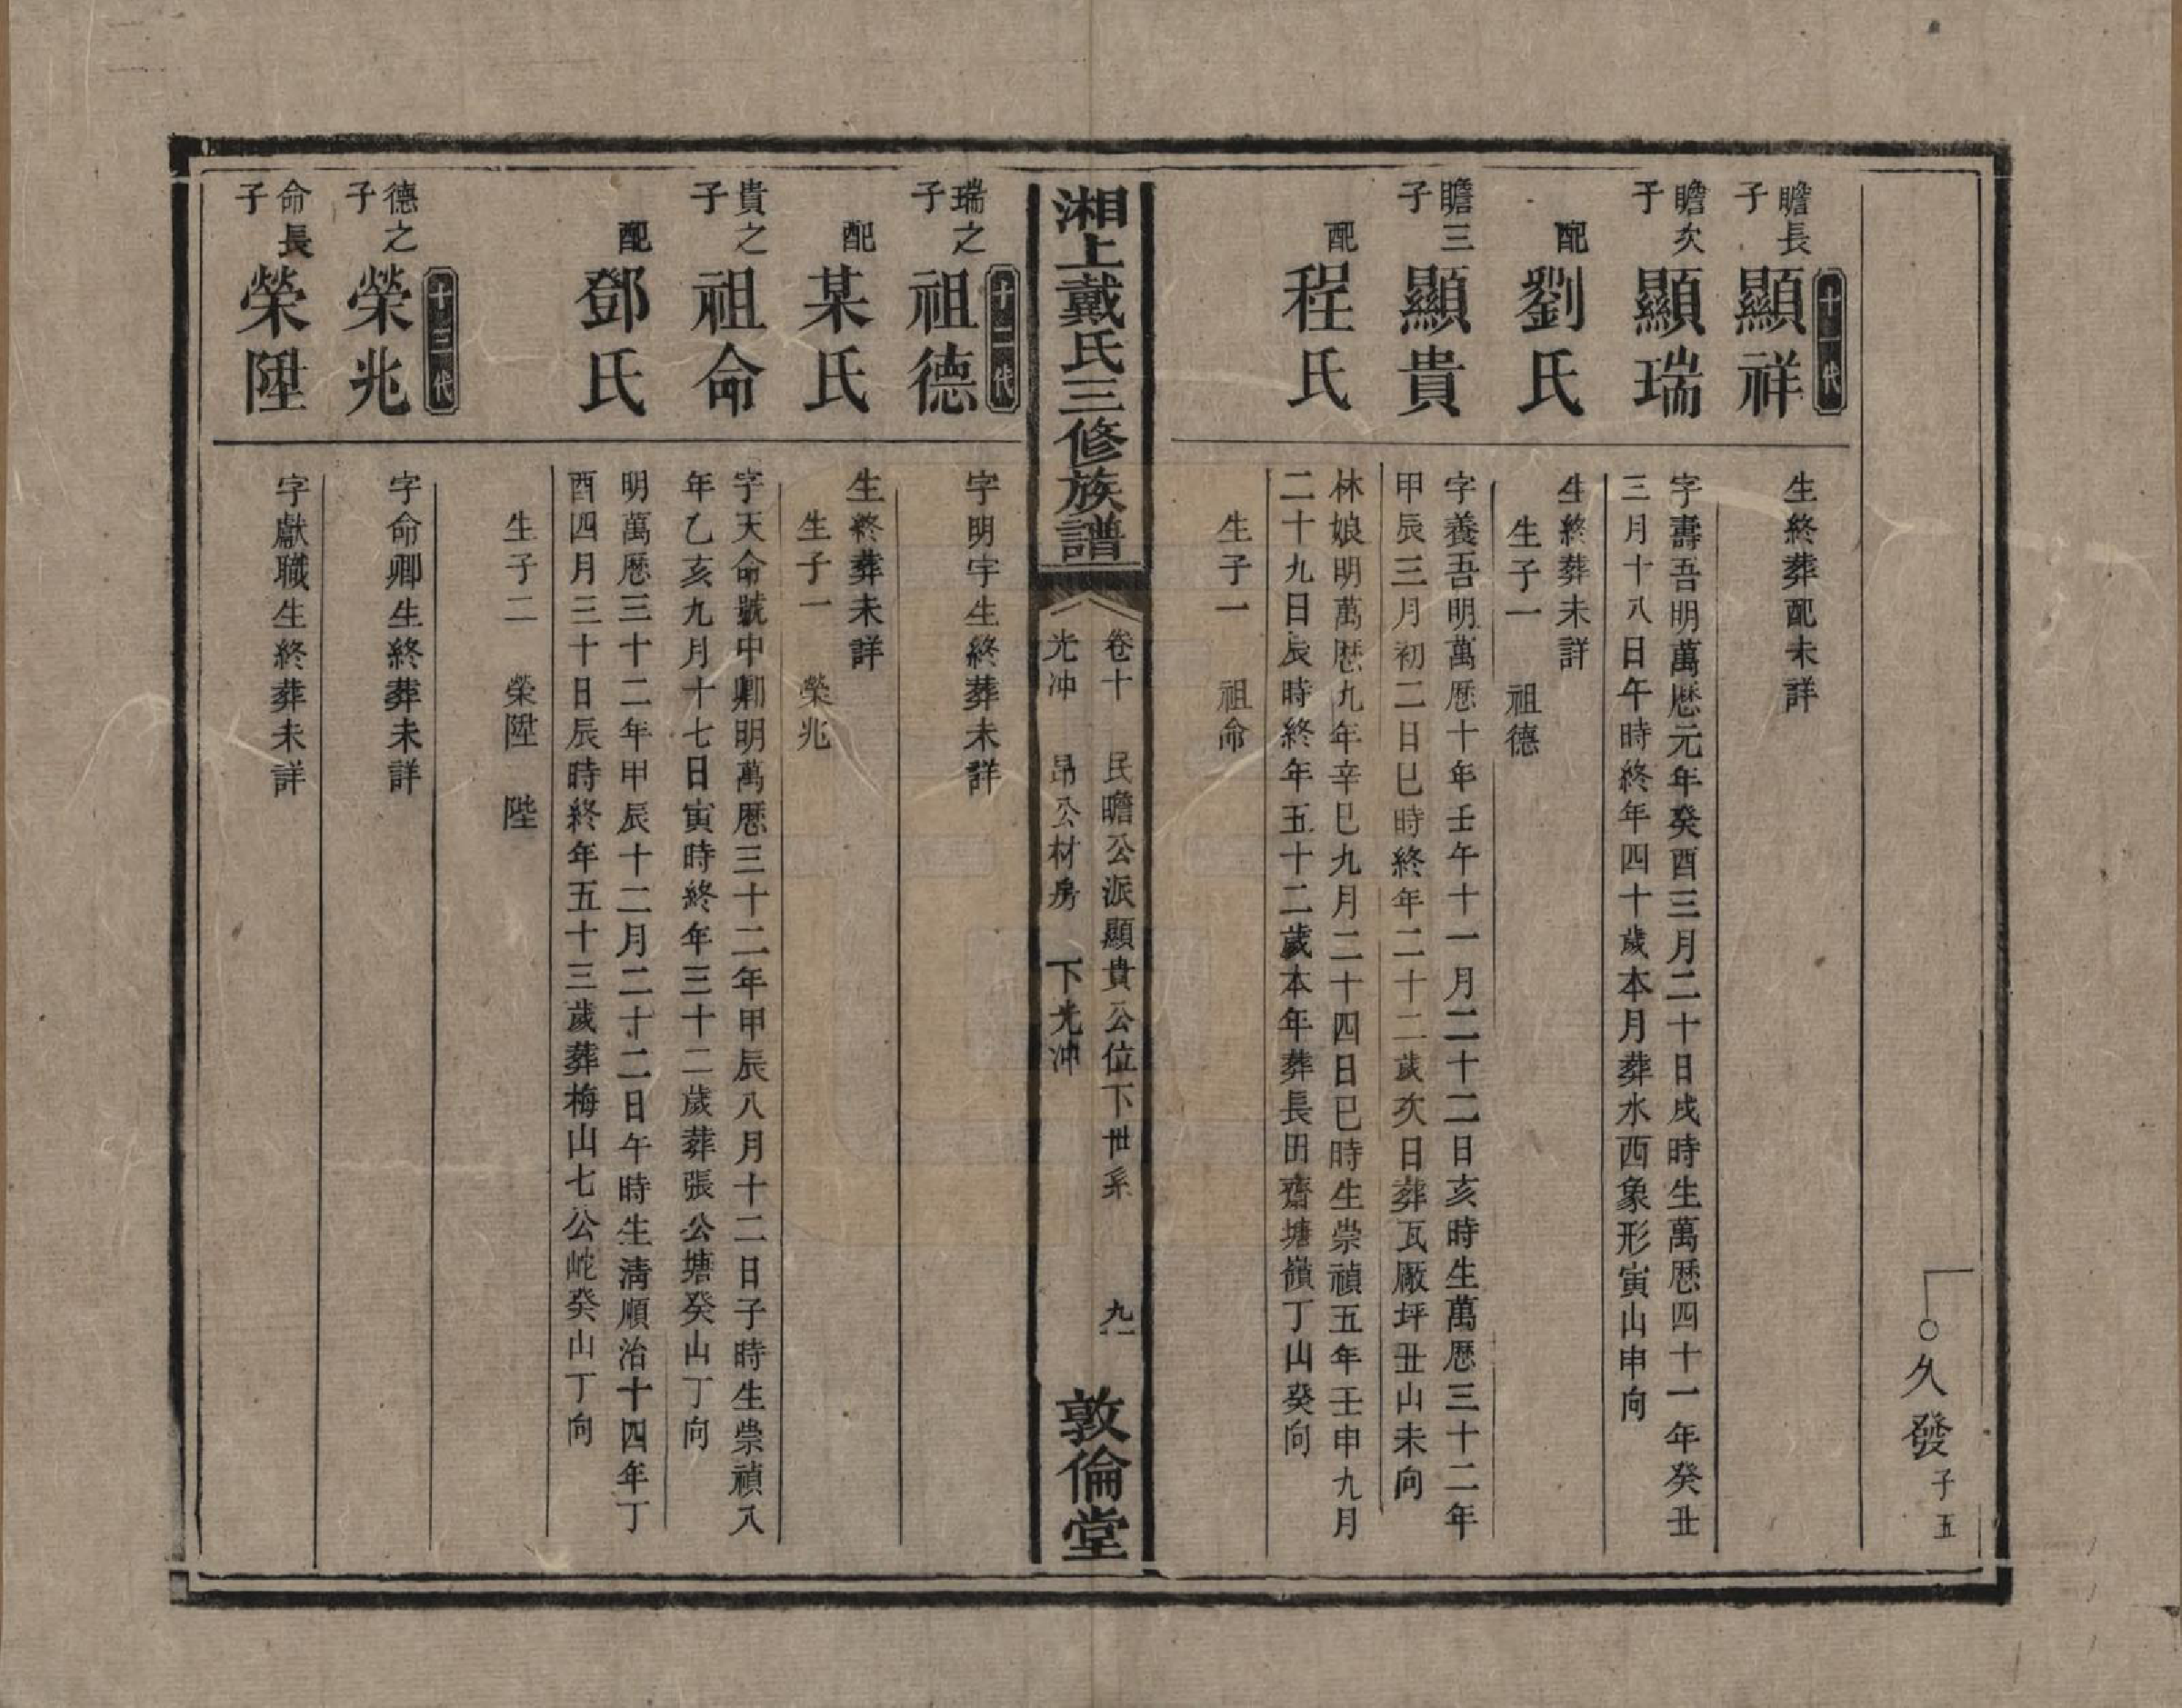 久發子五
十一代
瞻長子 顯祥
生終葬配未詳
瞻次子 顯瑞
字壽吾明萬歷元年癸酉三月二十日戌時生萬歷四十一年癸丑
三月十八日午時終年四十歲本月葬水西象形寅山申向
配 劉氏
生終葬未詳
生子一 祖德
瞻三子 顯貴
字養吾明萬歷十年壬午十一月二十二日亥時生萬歷三十二年
甲辰三月初二日巳時終年二十二歲次日葬瓦廠坪丑山未向
配 程氏
林娘明萬歷九年辛巳九月二十四日巳時生崇禎五年壬申九月
二十九日辰時終年五十二歲本年葬長田齋塘嶺丁山癸向
生子一 祖命
湘上戴氏三修族譜
卷十 民瞻公派顯貴公位下世系 九
光冲 昂公材房 下光冲
敦倫堂
十二代
瑞之子 祖德
字明宇生終葬未詳
配 某氏
生終葬未詳
生子一 榮兆
貴之子 祖命
字天命號中卿明萬歷三十二年甲辰八月十二日子時生崇禎八
年乙亥九月十七日寅時終年三十二歲葬張公塘癸山丁向
配 鄧氏
明萬歷三十二年甲辰十二月二十二日午時生清順治十四年丁
酉四月三十日辰時終年五十三歲葬梅山七公屹癸山丁向
生子二 榮陞 陛
十三代
德之子 榮兆
字命卿生終葬未詳
命長子 榮陞
字獻職生終葬未詳